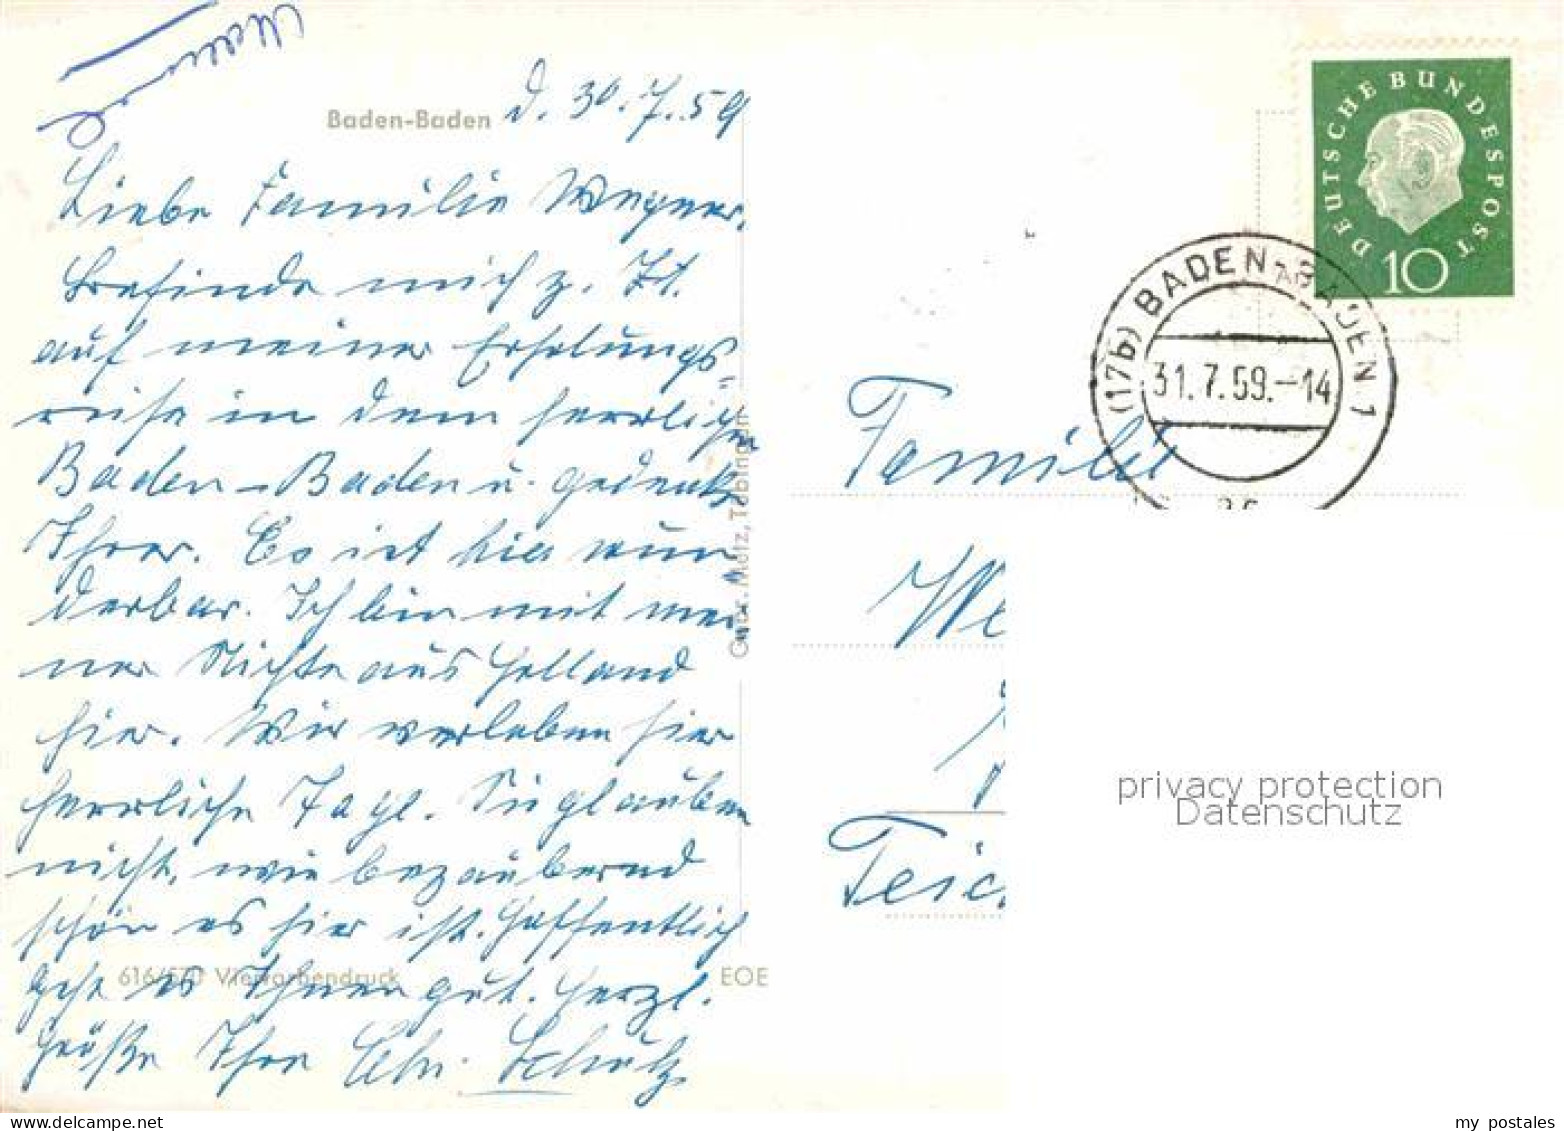 Baden-Baden
d. 30.7.59
Liebe Familie Wegner,
befinde mich z. Zt.
auf meiner Erholungs-
reise in dem herrlichen
Baden-Baden u. gedenke
Ihrer. Es ist hier wun
derbar. Ich bin mit mei
ner Nichte aus Holland
hier. Wir verleben hier
herrliche Tage. Sie glauben
nicht, wie bezaubernd
schön es hier ist. Hoffentlich
geht es Ihnen gut. Herzl.
Grüße Ihre Schulz
616/570 Vierfarbendruck
EOE
Gebr. Metz, Tübingen
DEUTSCHE BUNDESPOST
10
(17b) BADEN-BADEN 1
31.7.59.-14
Familie
We
Teic
privacy protection
Datenschutz
my postales